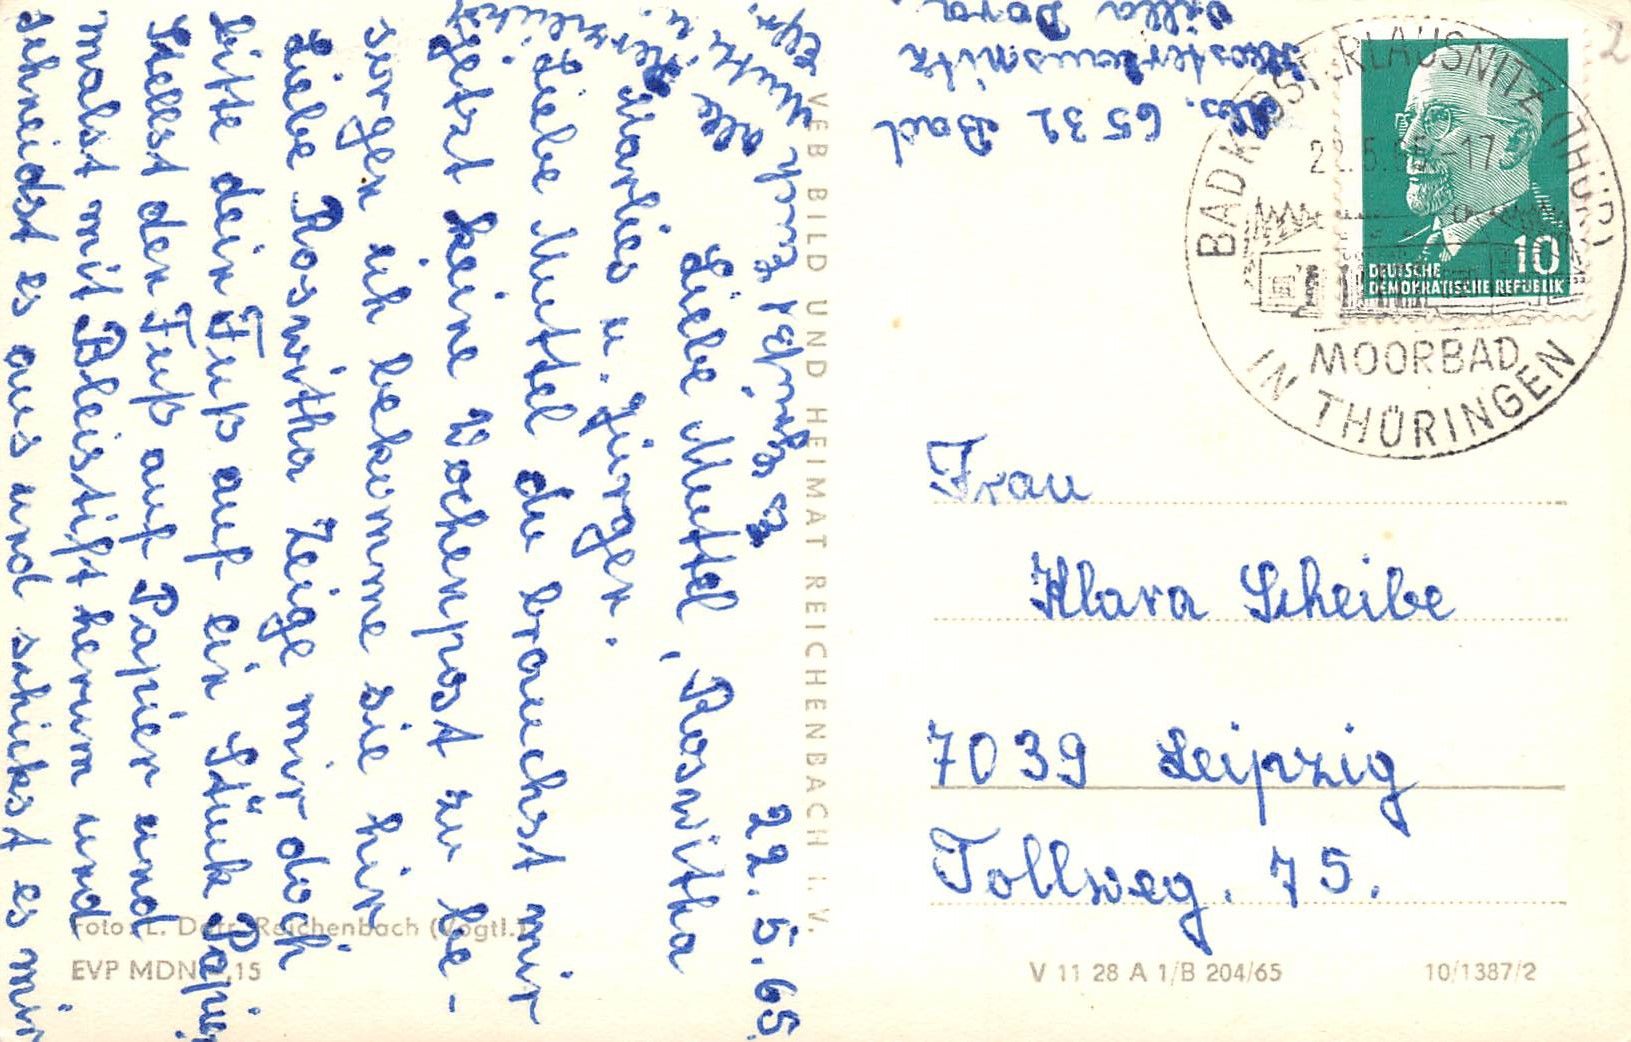 22.5.65
Liebe Muttel, Roswitha
Marlies u. Jürgen.
Liebe Muttel du brauchst mir
jetzt keine Wochenpost zu be-
sorgen ich bekomme sie hir
Liebe Roswitha Zeige mir doch
bitte dein Fuß auf ein Stück Papier
Stellst den Fuß auf Papier und
malst mit Bleistift herum und
schneidst es aus und schickst es mir
Herzlichst
alle
Abs. 6532 Bad
Klosterlausnitz
Villa Dora.
VEB BILD UND HEIMAT REICHENBACH I. V.
BAD KLOSTERLAUSNITZ (THÜR)
22.5.65-17
MOORBAD
IN THÜRINGEN
10
DEUTSCHE
DEMOKRATISCHE REPUBLIK
Frau
Klara Scheibe
7039 Leipzig
Tollweg. 75.
Foto: L. Reichenbach (Vogtl.)
EVP MDN 0,15
V 11 28 A 1/B 204/65
10/1387/2
2